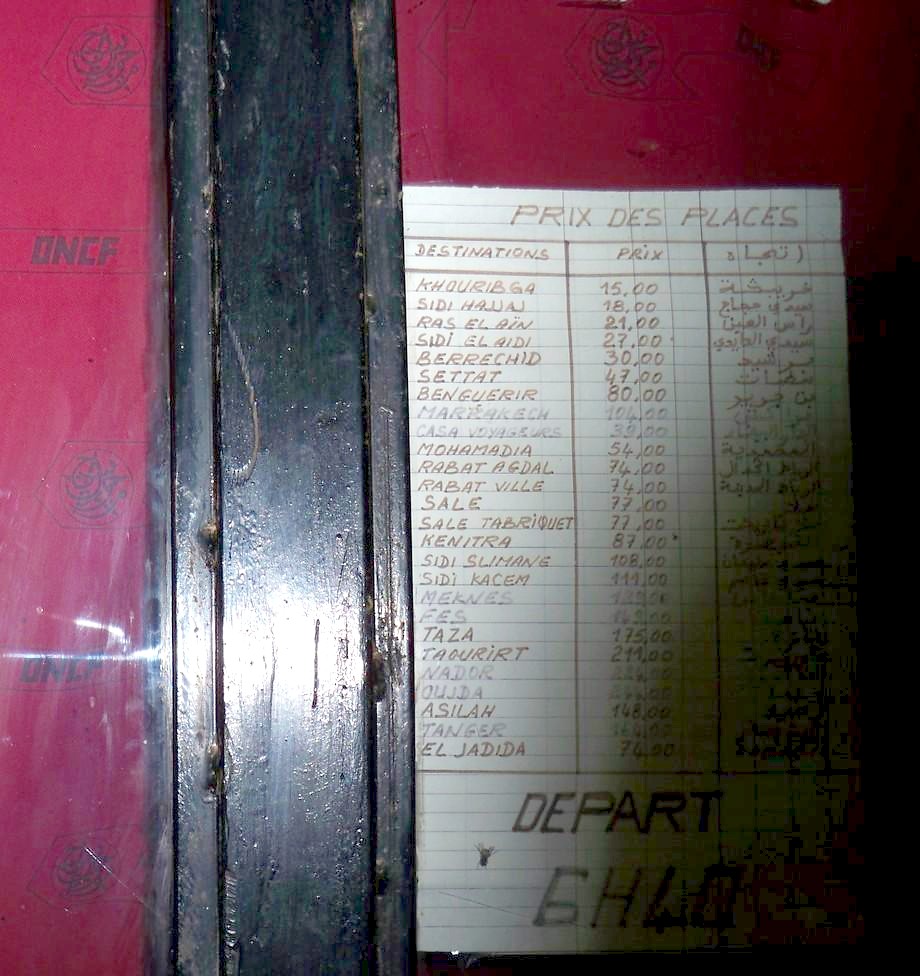 ONCF
ONCF
ONCF
PRIX DES PLACES
DESTINATIONS PRIX اتجاه
KHOURIBGA 15,00 خريبكة
SIDI HAJJAJ 18,00 سيدي حجاج
RAS EL AÏN 21,00 راس العين
SIDI EL AIDI 27,00 سيدي العايدي
BERRECHID 30,00 برشيد
SETTAT 47,00 سطات
BENGUERIR 80,00 بن جرير
MARRAKECH 104,00
CASA VOYAGEURS 39,00
MOHAMADIA 54,00 المحمدية
RABAT AGDAL 74,00 الرباط اكدال
RABAT VILLE 74,00 الرباط المدينة
SALE 77,00 سلا
SALE TABRIQUET 77,00
KENITRA 87,00
SIDI SLIMANE 108,00
SIDI KACEM 111,00
MEKNES
FES
TAZA 175,00
TAOURIRT 211,00
NADOR
OUJDA
ASILAH 148,00
TANGER
EL JADIDA 74,00
DEPART
6H40